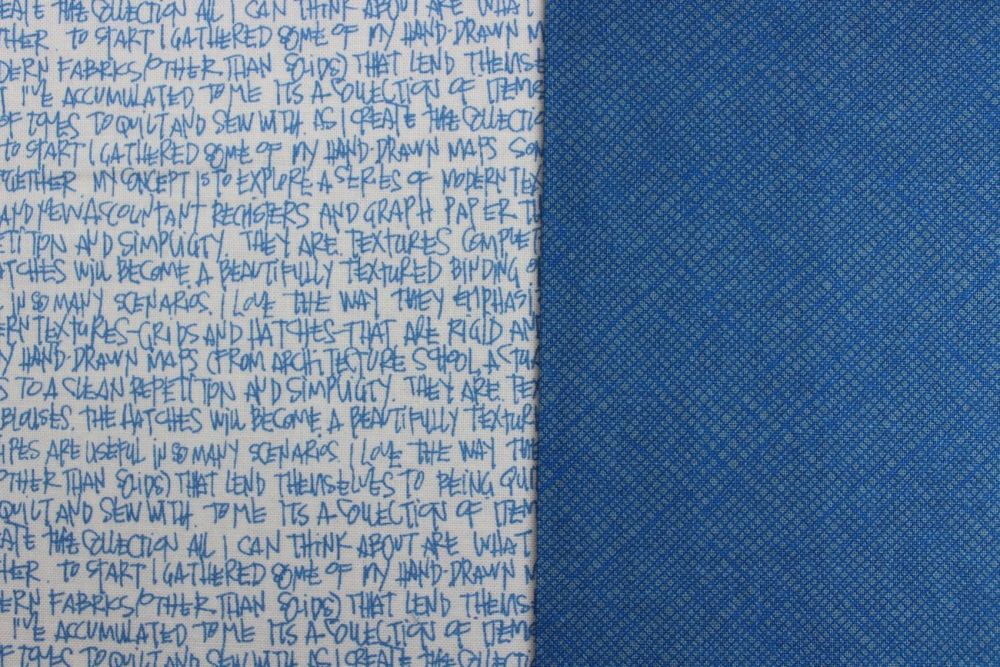 EATE THE COLLECTION ALL I CAN THINK ABOUT ARE WHAT I
THER. TO START I GATHERED SOME OF MY HAND-DRAWN M
DERN FABRICS (OTHER THAN SOLIDS) THAT LEND THEMSE
T I'VE ACCUMULATED. TO ME ITS A COLLECTION OF ITEMS
OF TONES TO QUILT AND SEW WITH. AS I CREATE THE COLLECTIO
TO START I GATHERED SOME OF MY HAND-DRAWN MAPS SOM
OGETHER. MY CONCEPT IS TO EXPLORE A SERIES OF MODERN TEX
AND NEW ACCOUNTANT REGISTERS AND GRAPH PAPER T
ETITION AND SIMPLICITY. THEY ARE TEXTURES COMPLET
ATCHES WILL BECOME A BEAUTIFULLY TEXTURED BINDING O
L IN SO MANY SCENARIOS. I LOVE THE WAY THEY EMPHASI
ERN TEXTURES-GRIDS AND HATCHES-THAT ARE RIGID AN
Y HAND-DRAWN MAPS (FROM ARCHITECTURE SCHOOL, A STU
S TO A CLEAN REPETITION AND SIMPLICITY. THEY ARE TEX
BLOUSES. THE HATCHES WILL BECOME A BEAUTIFULLY TEXTUR
IPES ARE USEFUL IN SO MANY SCENARIOS. I LOVE THE WAY THE
OTHER THAN SOLIDS) THAT LEND THEMSELVES TO BEING QUI
QUILT AND SEW WITH. TO ME ITS A COLLECTION OF ITEM
EATE THE COLLECTION ALL I CAN THINK ABOUT ARE WHAT
HER. TO START I GATHERED SOME OF MY HAND-DRAWN M
ERN FABRICS (OTHER THAN SOLIDS) THAT LEND THEMS
I'VE ACCUMULATED. TO ME ITS A COLLECTION OF ITEMS
F TONES TO QUILT AND SEW WITH. AS I CREATE THE COLLECTIO